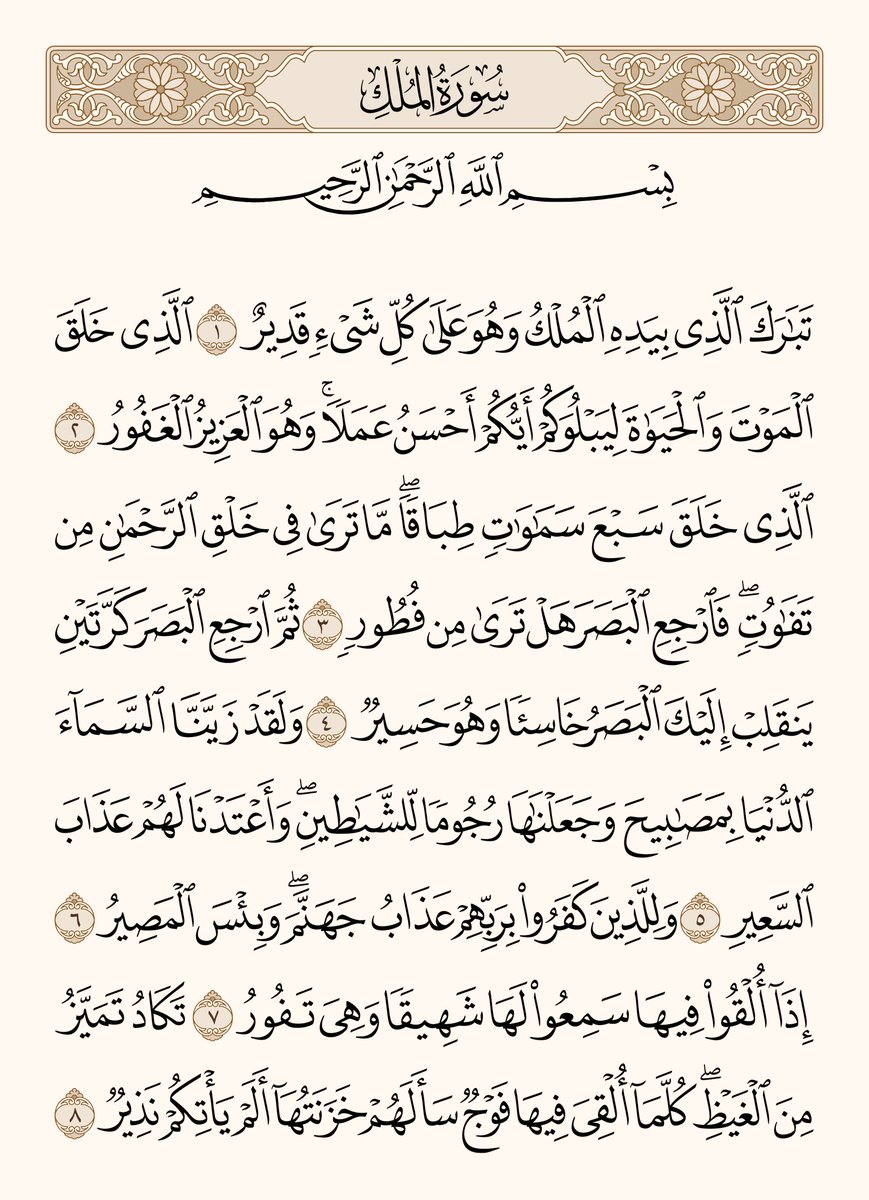 سُورَةُ الْمُلْكِ
بِسْمِ ٱللَّهِ ٱلرَّحْمَٰنِ ٱلرَّحِيمِ
تَبَٰرَكَ ٱلَّذِى بِيَدِهِ ٱلْمُلْكُ وَهُوَ عَلَىٰ كُلِّ شَىْءٍ قَدِيرٌ ١ ٱلَّذِى خَلَقَ
ٱلْمَوْتَ وَٱلْحَيَوٰةَ لِيَبْلُوَكُمْ أَيُّكُمْ أَحْسَنُ عَمَلًا ۚ وَهُوَ ٱلْعَزِيزُ ٱلْغَفُورُ ٢
ٱلَّذِى خَلَقَ سَبْعَ سَمَٰوَٰتٍ طِبَاقًا ۖ مَّا تَرَىٰ فِى خَلْقِ ٱلرَّحْمَٰنِ مِن
تَفَٰوُتٍ ۖ فَٱرْجِعِ ٱلْبَصَرَ هَلْ تَرَىٰ مِن فُطُورٍ ٣ ثُمَّ ٱرْجِعِ ٱلْبَصَرَ كَرَّتَيْنِ
يَنقَلِبْ إِلَيْكَ ٱلْبَصَرُ خَاسِئًا وَهُوَ حَسِيرٌ ٤ وَلَقَدْ زَيَّنَّا ٱلسَّمَآءَ
ٱلدُّنْيَا بِمَصَٰبِيحَ وَجَعَلْنَٰهَا رُجُومًا لِّلشَّيَٰطِينِ ۖ وَأَعْتَدْنَا لَهُمْ عَذَابَ
ٱلسَّعِيرِ ٥ وَلِلَّذِينَ كَفَرُوا۟ بِرَبِّهِمْ عَذَابُ جَهَنَّمَ ۖ وَبِئْسَ ٱلْمَصِيرُ ٦
إِذَآ أُلْقُوا۟ فِيهَا سَمِعُوا۟ لَهَا شَهِيقًا وَهِىَ تَفُورُ ٧ تَكَادُ تَمَيَّزُ
مِنَ ٱلْغَيْظِ ۖ كُلَّمَآ أُلْقِىَ فِيهَا فَوْجٌ سَأَلَهُمْ خَزَنَتُهَآ أَلَمْ يَأْتِكُمْ نَذِيرٌ ٨